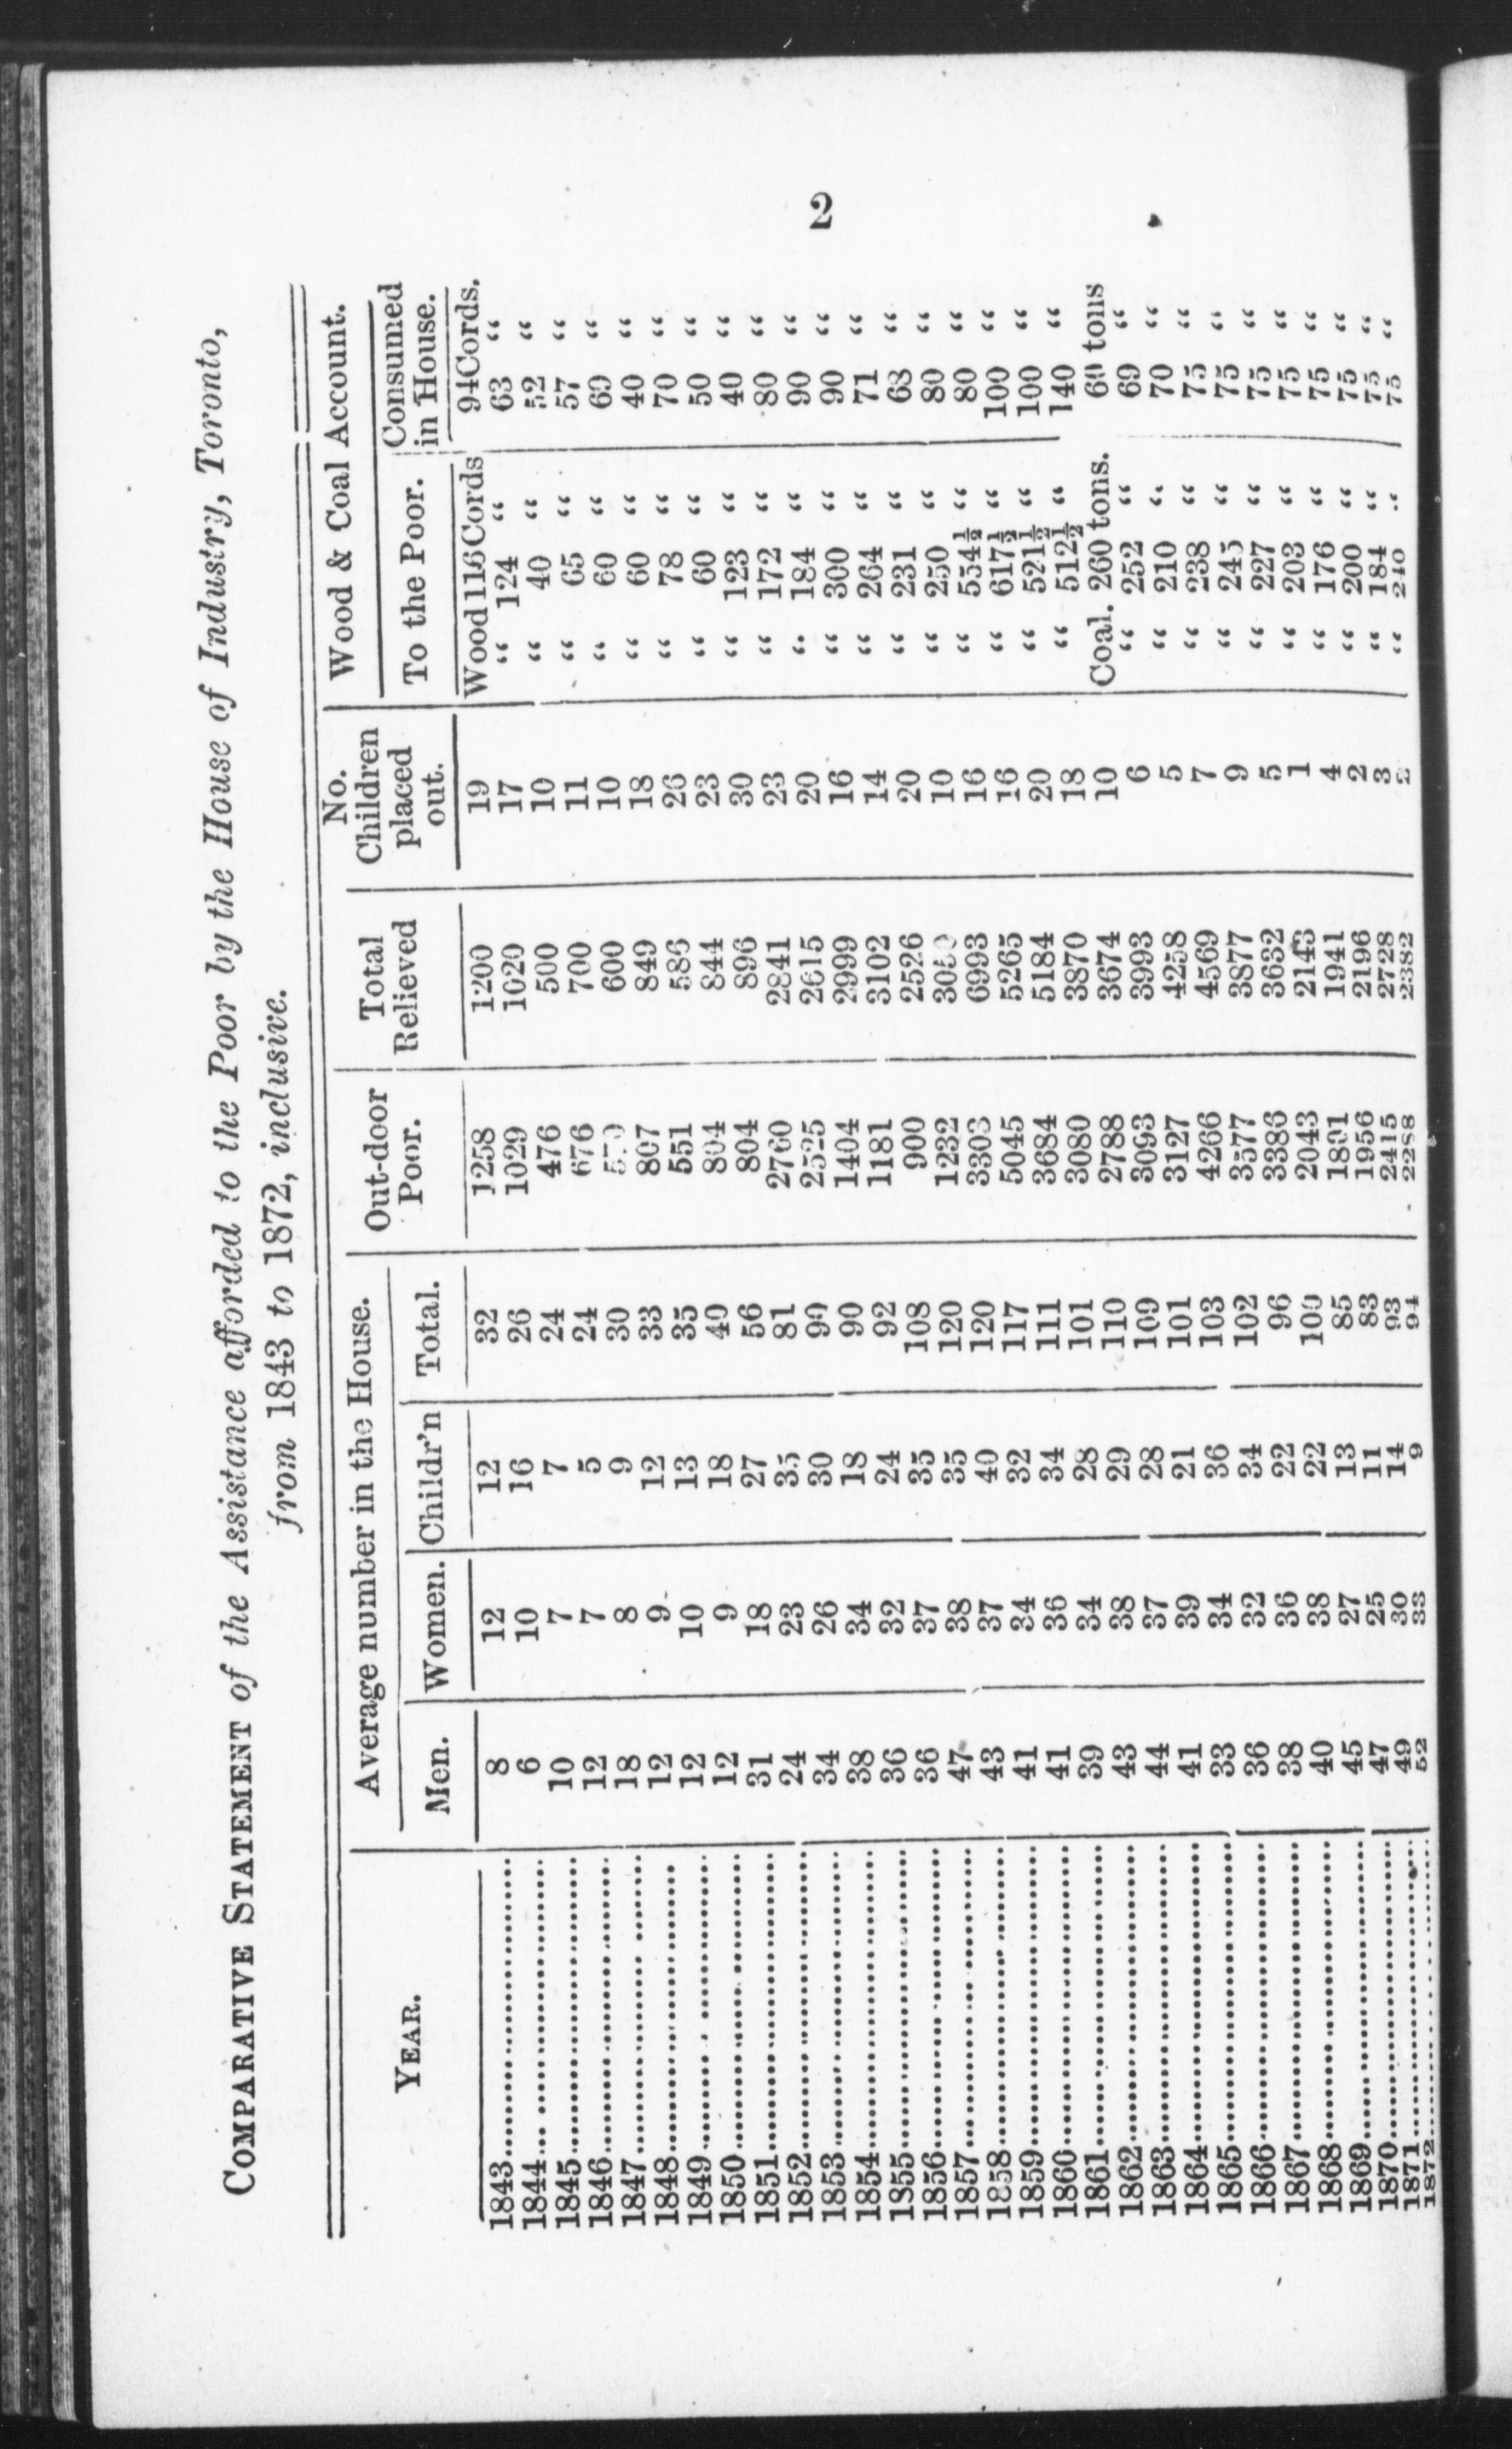 2
COMPARATIVE STATEMENT of the Assistance afforded to the Poor by the House of Industry, Toronto,
from 1843 to 1872, inclusive.
YEAR. Average number in the House. Out-door Poor. Total Relieved No. Children placed out. Wood & Coal Account.
Men. Women. Childr'n Total. To the Poor. Consumed in House.
1843 8 12 12 32 1258 1200 19 Wood 116 Cords 94 Cords.
1844 6 10 16 26 1029 1020 17 “ 124 “ 63 “
1845 10 7 7 24 476 500 10 “ 40 “ 52 “
1846 12 7 5 24 676 700 11 “ 65 “ 57 “
1847 18 8 9 30 600 10 “ 60 “ 69 “
1848 12 9 12 33 807 849 18 “ 60 “ 40 “
1849 12 10 13 35 551 586 26 “ 78 “ 70 “
1850 12 9 18 40 804 844 23 “ 60 “ 50 “
1851 31 18 27 56 804 896 30 “ 123 “ 40 “
1852 24 23 35 81 2760 2841 23 “ 172 “ 80 “
1853 34 26 30 90 2525 2615 20 “ 184 “ 90 “
1854 38 34 18 90 1404 2999 16 “ 300 “ 90 “
1855 36 32 24 92 1181 3102 14 “ 264 “ 71 “
1856 36 37 35 108 900 2526 20 “ 231 “ 68 “
1857 47 38 35 120 1232 10 “ 250 “ 80 “
1858 43 37 40 120 3303 6993 16 “ 554½ “ 80 “
1859 41 34 32 117 5045 5265 16 “ 617½ “ 100 “
1860 41 36 34 111 3684 5184 20 “ 521½ “ 100 “
1861 39 34 28 101 3080 3870 18 “ 512½ “ 140 “
1862 43 38 29 110 2788 3674 10 Coal. 260 tons. 60 tons
1863 44 37 28 109 3093 3993 6 “ 252 “ 69 “
1864 41 39 21 101 3127 4258 5 “ 210 “ 70 “
1865 33 34 36 103 4266 4569 7 “ 238 “ 75 “
1866 36 32 34 102 3577 3877 9 “ 245 “ 75 “
1867 38 36 22 96 3386 3632 5 “ 227 “ 75 “
1868 40 38 22 100 2043 2143 1 “ 203 “ 75 “
1869 45 27 13 85 1891 1941 4 “ 176 “ 75 “
1870 47 25 11 83 1956 2196 2 “ 200 “ 75 “
1871 49 30 14 93 2415 2728 3 “ 184 “ 75 “
1872 52 33 9 94 2288 2382 2 “ 240 “ 75 “